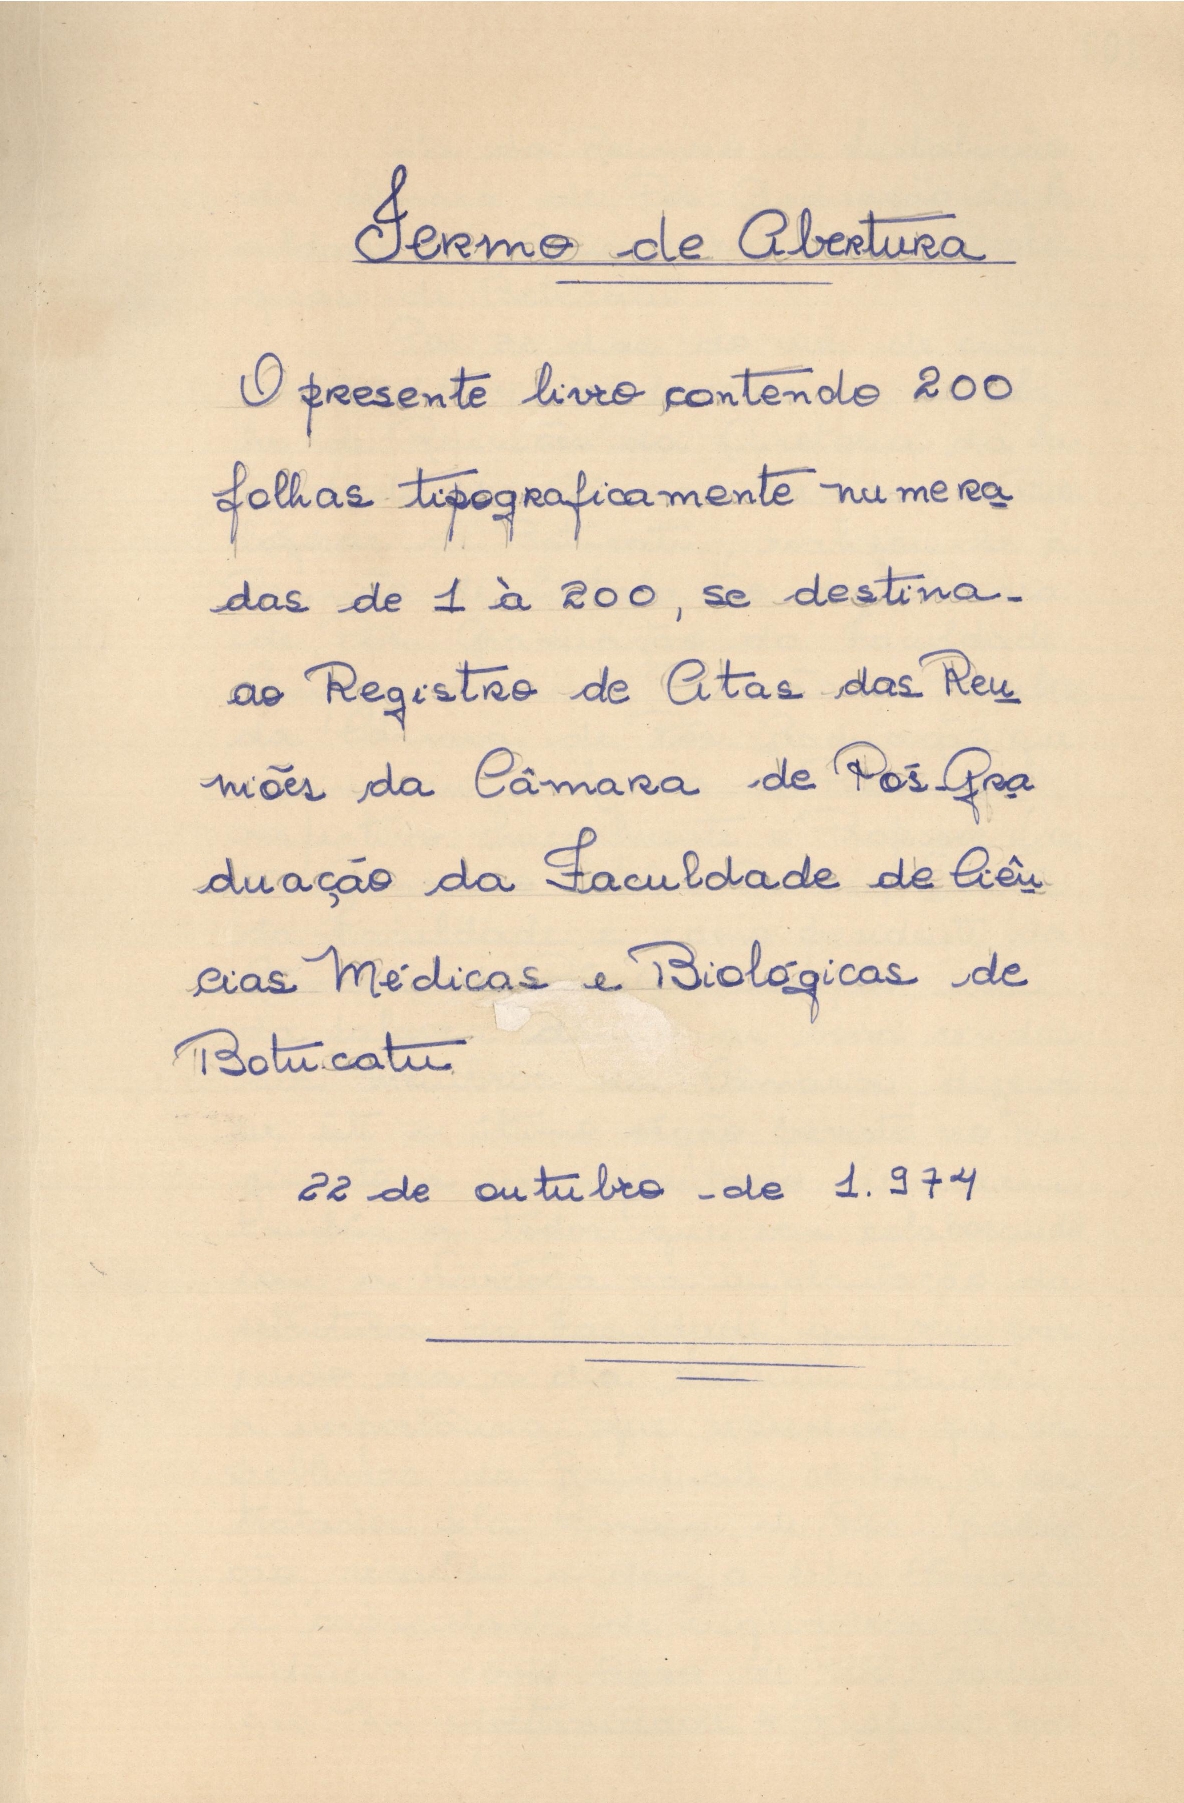 Termo de Abertura
O presente livro contendo 200
folhas tipograficamente numera
das de 1 à 200, se destina-
ao Registro de Atas das Reu
niões da Câmara de Pós-Gra
duação da Faculdade de Ciên
cias Médicas e Biológicas de
Botucatu
22 de outubro de 1.974